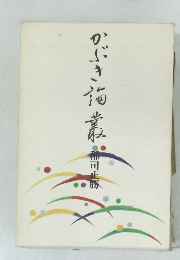 かぶき論叢
郡司正勝